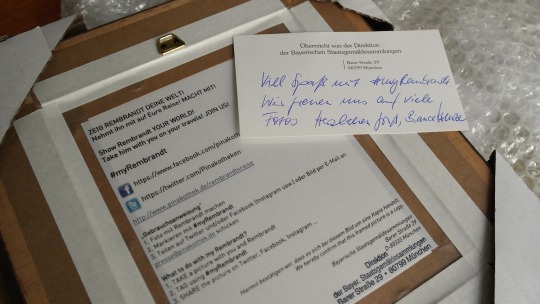 Überreicht von der Direktion
der Bayerischen Staatsgemäldesammlungen
Barer Straße 29
80799 München
Viel Spaß mit #myRembrandt
Wir freuen uns auf viele
Fotos Herzlichen Gruß,
ZEIG REMBRANDT DEINE WELT!
Nehmt ihn mit auf Eure Reise! MACHT MIT!
Show Rembrandt YOUR WORLD!
Take him with you on your travels! JOIN US!
#myRembrandt
https://www.facebook.com/pinakotheken
https://twitter.com/Pinakotheken
http://www.pinakothek.de/rembrandtsreise
„Gebrauchsanweisung"
1. Foto mit Rembrandt machen
2. Markieren mit #myRembrandt
3. Teilen auf Twitter und/oder Facebook (Instagram usw.) oder Bild per E-Mail an
presse@pinakothek.de schicken
What to do with my Rembrandt?
1. TAKE a picture with you and Rembrandt
2. TAG using #myRembrandt
3. SHARE the picture on Twitter, Facebook, Instagram ...
Hiermit bestätigen wir, dass es sich bei diesem Bild um eine Kopie handelt.
We hereby confirm that this framed picture is a copy.
Bayerische Staatsgemäldesammlungen
Barer Straße 29
D-80333 München
Direktion
der Bayer. Staatsgemäldesammlungen
Barer Straße 29 • 80799 München